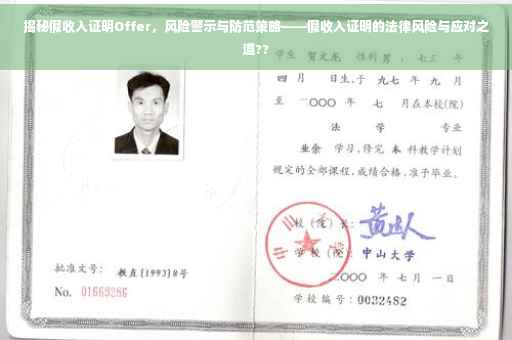 揭秘假收入证明Offer，风险警示与防范策略——假收入证明的法律风险与应对之
道??
学生 贺文龙 性别 男 ，七三 年
四 月 日生,于 九七 年 九 月
至 二〇〇〇 年 七 月在本校(院)
法 学 专业
业余 学习,修完 本 科教学计划
规定的全部课程,成绩合格,准予毕业。
校 (院) 长:
学 校 (院): 中山大学
二〇〇〇 年 七 月 一 日
学校编号: 0032482
批准文号: 教直[1993]8号
No. 01669286